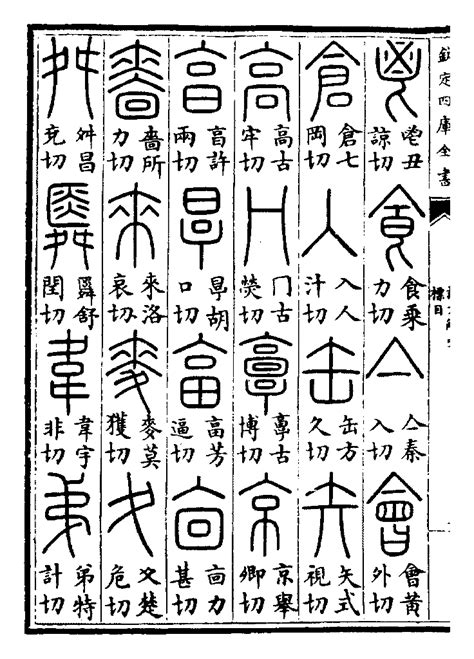 欽定四庫全書
標目
鬯丑諒切 食乗力切 亼秦入切 會黃外切
倉七岡切 入人汁切 缶方久切 矢式視切
高古牢切 冂古熒切 𩫏古博切 京舉卿切
亯許兩切 㫗胡口切 畗芳逼切 㐭力甚切
嗇所力切 來洛哀切 麥莫獲切 夊楚危切
舛昌兗切 䑞舒閏切 韋宇非切 弟特計切